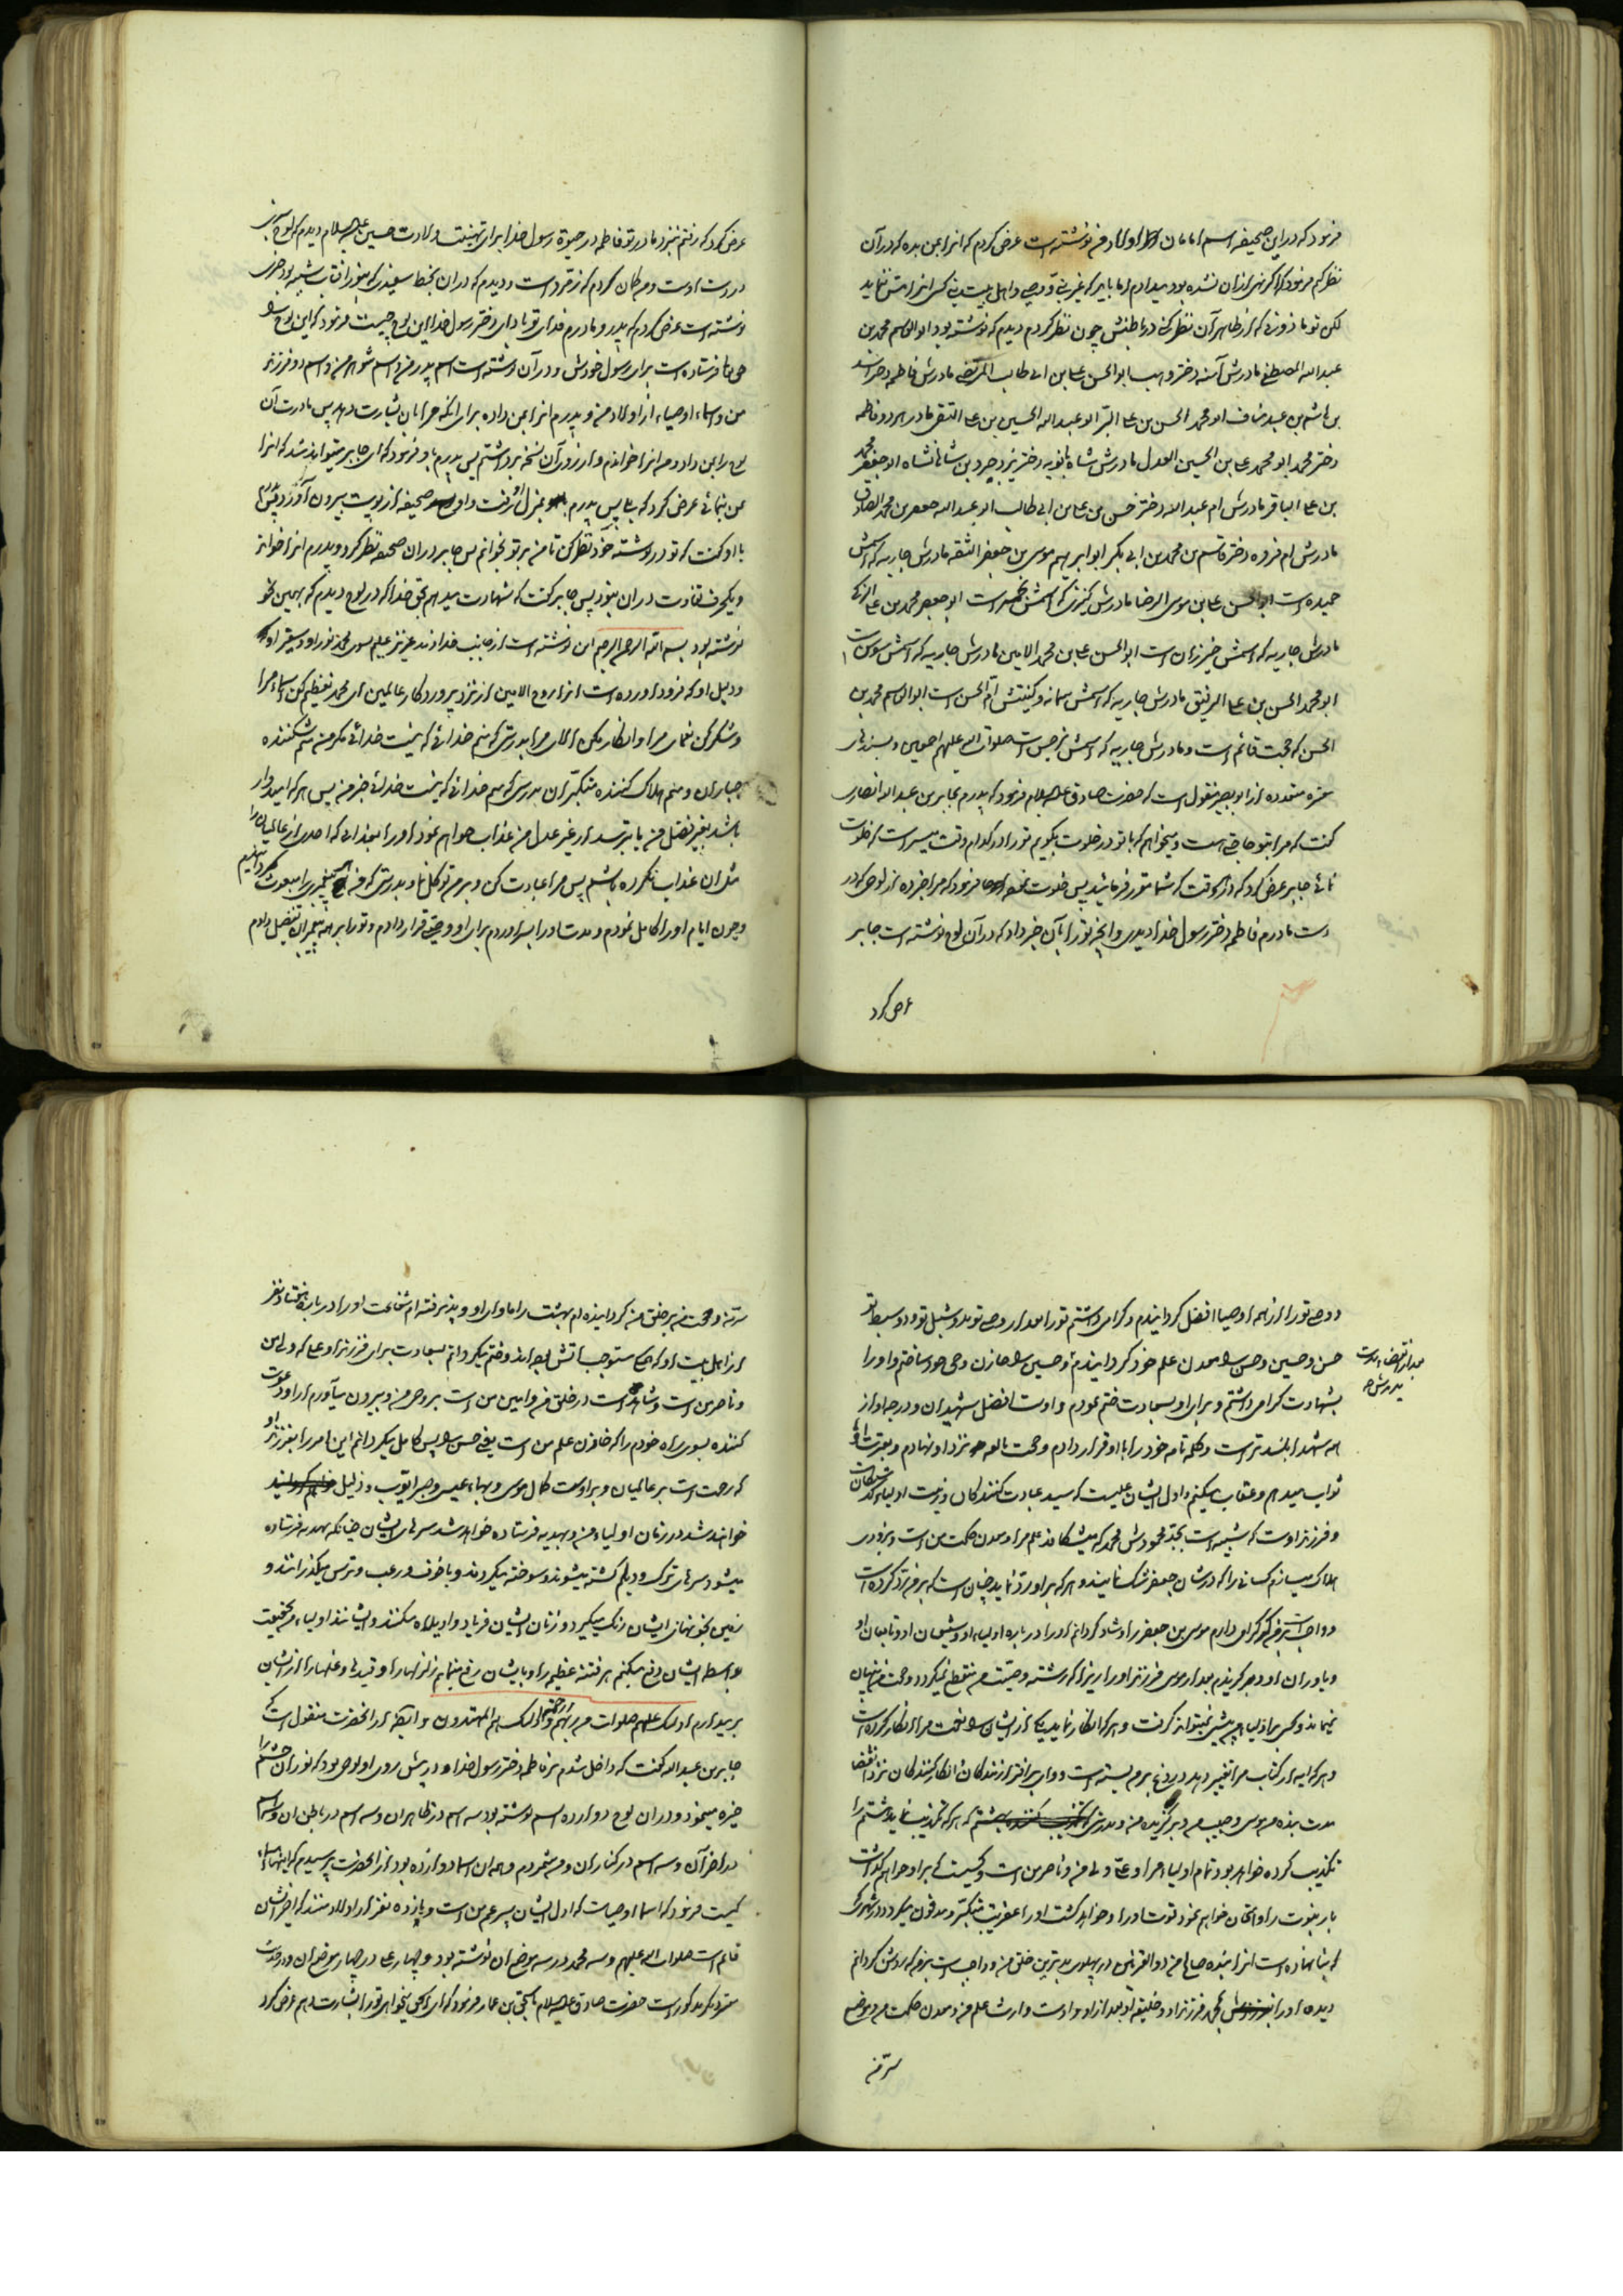 فرمود که در این صحیفه اسم امامان از اولاد من نوشته است عرض کردم که انرا بمن بده که در آن
نظر کنم فرمود که اگر نهی از ان نشده بود میدادم اما باید که غیر نبی و وصی و اهل بیت نبی کسی انرا مس ننماید
لکن تو ماذونی که از ظاهر آن نظر کنی در باطنش چون نظر کردم دیدم که نوشته بود ابو القاسم محمد بن
عبد الله المصطفی مادرش آمنه دختر وهب ابو الحسن علی بن ابی طالب المرتضی مادرش فاطمه دختر اسد
بن هاشم بن عبد مناف ابو محمد الحسن بن علی البر ابو عبد الله الحسین بن علی التقی مادر هر دو فاطمه
دختر محمد ابو محمد علی بن الحسین العدل مادرش شاه بانویه دختر یزدجرد بن شاهانشاه ابو جعفر محمد
بن علی الباقر مادرش ام عبد الله دختر حسن بن علی بن ابی طالب ابو عبد الله جعفر بن محمد الصادق
مادرش ام فروه دختر قاسم بن محمد بن ابی بکر ابو ابرهیم موسی بن جعفر الثقه مادرش جاریه که اسمش
حمیده است ابو الحسن علی بن موسی الرضا مادرش کنیزی که اسمش نجمه است ابو جعفر محمد بن علی الزکی
مادرش جاریه که اسمش خیزران است ابو الحسن علی بن محمد الامین مادرش جاریه که اسمش سوسن است
ابو محمد الحسن بن علی الرفیق مادرش جاریه که اسمش سمانه و کنیتش ام الحسن است ابو القاسم محمد بن
الحسن که حجت قائم است و مادرش جاریه که اسمش نرجس است صلوات الله علیهم اجمعین و بسندهای
معتبره متعدده از ابو بصیر منقول است که حضرت صادق علیه السلام فرمود که پدرم بجابر بن عبد الله انصاری
گفت که مرا بتو حاجتی هست و میخواهم که با تو در خلوت بگویم تو را در کدام وقت میسر است که خلوت
نمائی جابر عرض کرد که در هر وقت که شما مقرر فرمائید پس خلوت فرمود که مرا خبر ده از لوحی که در
دست مادرم فاطمه دختر رسول خدا دیدی و انچه تو را بآن خبر داد که در آن لوح نوشته است جابر
عرض کرد
عرض کرد که رفتم نزد مادر تو فاطمه در حیوة رسول خدا برای تهنیت ولادت حسین علیه السلام دیدم که لوح سبزی
در دست اوست و من گمان کردم که زمرد است و دیدم که در ان بخط سفیدی که بنور افتاب شبیه بود چیزی
نوشته است عرض کردم که پدر و مادرم فدای تو باد ای دختر رسول خدا این لوح چیست فرمود که این لوح را
حق تعالی فرستاده است برای رسول خودش و در آن نوشته است اسم پدر من و اسم شوهر من و اسم دو فرزند
من و اسماء اوصیاء از اولاد من و پدرم انرا بمن داده برای انکه مرا بان بشارت دهد پس مادرت آن
لوح را بمن داد و من انرا خواندم و از روی آن نسخه برداشتم پس پدرم باو فرمود که ای جابر میتواند شد که انرا
بمن بنمائی عرض کرد که بلی پس پدرم بمنزل او رفت و او صحیفه از پوست بیرون آورد و پدرم
با او گفت که تو در نوشته خود نظر کن تا من بر تو بخوانم پس جابر در ان صحیفه نظر کرد و پدرم انرا خواند
و یکحرف تفاوت در ان نبود پس جابر گفت که شهادت میدهم بحق خدا که در لوح دیدم که بهمین نحو
نوشته بود بسم الله الرحمن الرحیم این نوشته است از جانب خداوند عزیز علیم بسوی محمد نور او و سفیر او
و دلیل او که فرود آورده است انرا روح الامین از نزد پروردگار عالمین ای محمد تعظیم کن اسماء مرا
و شکر کن نعمای مرا و انکار مکن الای مرا بدرستی که منم خدائی که نیست خدائی مگر من منم شکننده
جباران و منم هلاک کننده متکبران بدرستی که منم خدائی که نیست خدائی جز من پس هر که امیدوار
باشد بغیر فضل من یا بترسد از غیر عدل من عذاب خواهم نمود او را بعذابی که احدی از عالمیان را
مثل ان عذاب نکرده باشم پس مرا عبادت کن و بر من توکل نما و بدرستی که من هیچ پیغمبری را مبعوث نگردانیدم
و چون ایام او را کامل نمودم و مدت او را بسر اوردم برای او وصیی قرار دادم و تو را بر همه پیغمبران تفضیل دادم
و وصی تو را از همه اوصیا افضل گردانیدم و گرامی داشتم تو را بعد از وصی تو بدو شبل تو و دو سبط تو
حسن و حسین و حسن را معدن علم خود گردانیدم و حسین را خازن وحی خود ساختم و او را
بعد از انقضاء مدت
پدرش
بشهادت گرامی داشتم و برای او بسعادت ختم نمودم و اوست افضل شهیدان و درجه او از
همه شهدا بلندتر است و کلمه تامه خود را با او قرار دادم و حجت بالغه نزد او نهادم و بعترت او
ثواب میدهم و عقاب میکنم و اول ایشان علیست که سید عبادت کنندگان و زینت اولیاء گذشتگان است
و فرزند اوست که شبیه است بجد محمودش محمد که میشکافد علم مرا و معدن حکمت من است و بزودی
هلاک میسازم کسانی را که در شان جعفر شک نمایند و هر که بر او رد نماید چنان است که بر من رد کرده است
و واجب است بر من که گرامی دارم موسی بن جعفر را و شاد گردانم او را در باره اولیاء او و شیعیان او و تابعان او
و یاوران او و بر گزیدم بعد از موسی فرزند او را زیرا که رشته وصیت من منقطع نمیگردد و حجت من پنهان
نمیماند و کسی بر اولیاء من پیشی نمیتواند گرفت و هر که انکار نماید یکی از ایشان را نعمت مرا انکار کرده است
و هر که ایه از کتاب مرا تغییر دهد دروغ بر من بسته است و وای بر افترا زنندگان انکار کنندگان نزد انقضا
مدت بنده من موسی و حبیب من و برگزیده من و بدرستی که هر که تکذیب نماید هشتم را
تکذیب کرده خواهد بود تمام اولیاء مرا و علی ولی من و ناصر من است و کسیست که بر او خواهم گذاشت
بار نبوت را و امتحان خواهم نمود قوت او را و خواهد کشت او را عفریت متکبر و مدفون میگردد در شهری که
که بنا نهاده است انرا بنده صالح من ذو القرنین در پهلوی بدترین خلق من و واجب است بر من که روشن گردانم
دیده او را بمحمد فرزند او و خلیفه او بعد از او و اوست وارث علم من و معدن حکمت من و موضع
سر من
سر من و حجت من بر خلق من گردانیده ام بهشت را ماوای او و پذیرفته ام شفاعت او را در باره هفتاد نفر
از اهل بیت او که همه مستوجب اتش بوده اند و ختم میگردانم بسعادت برای فرزند او علی که ولی من
و ناصر من است و شاهد است در خلق من و امین من است بر وحی من و بیرون میآورم از او دعوت
کننده بسوی راه خودم را که خازن علم من است یعنی حسن را پس کامل میگردانم این امر را بفرزند او
که رحمت است بر عالمیان و بر اوست کمال موسی و بهاء عیسی و صبر ایوب و ذلیل
خواهند شد در زمان او اولیاء من و بهدیه فرستاده خواهد شد سرهای ایشان چنانکه بهدیه فرستاده
میشود سرهای ترک و دیلم کشته میشوند و سوخته میگردند و با خوف و رعب و ترس میگذرانند و
زمین بخونهای ایشان رنگ میگیرد و زنان ایشان فریاد و اویلاه میکنند و ایشانند اولیاء من بحقیقت
بواسطه ایشان دفع میکنم هر فتنه عظیم را و بایشان رفع مینمایم زلزلها را و قیدها و غلها را از ایشان
بر میدارم اولئک علیهم صلوات من ربهم و رحمة و اولئک هم المهتدون و ایضا از انحضرت منقول است که
جابر بن عبد الله گفت که داخل شدم نزد فاطمه دختر رسول خدا و در پیش روی او لوحی بود که نور ان چشم را
خیره مینمود و در ان لوح دوازده اسم نوشته بود سه اسم در ظاهر ان و سه اسم در باطن ان و سه اسم
در اخر آن و سه اسم در کنار ان و من شمردم و همه ان اسما دوازده بود از انحضرت پرسیدم که اینها اسماء
کیست فرمود که اسماء اوصیاست که اول ایشان پسر عم من است و یازده نفر از اولاد منند که اخر ایشان
قائم است صلوات الله علیهم و سه محمد در سه موضع ان نوشته بود و چهار علی در چهار موضع ان و در حدیث
معتبر دیگر مذکور است حضرت صادق علیه السلام باسحق بن عمار فرمود که ای اسحق میخواهی تو را بشارت دهم عرض کرد